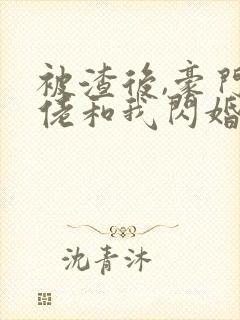 被渣後,豪門
佬和我閃婚
沈青沐